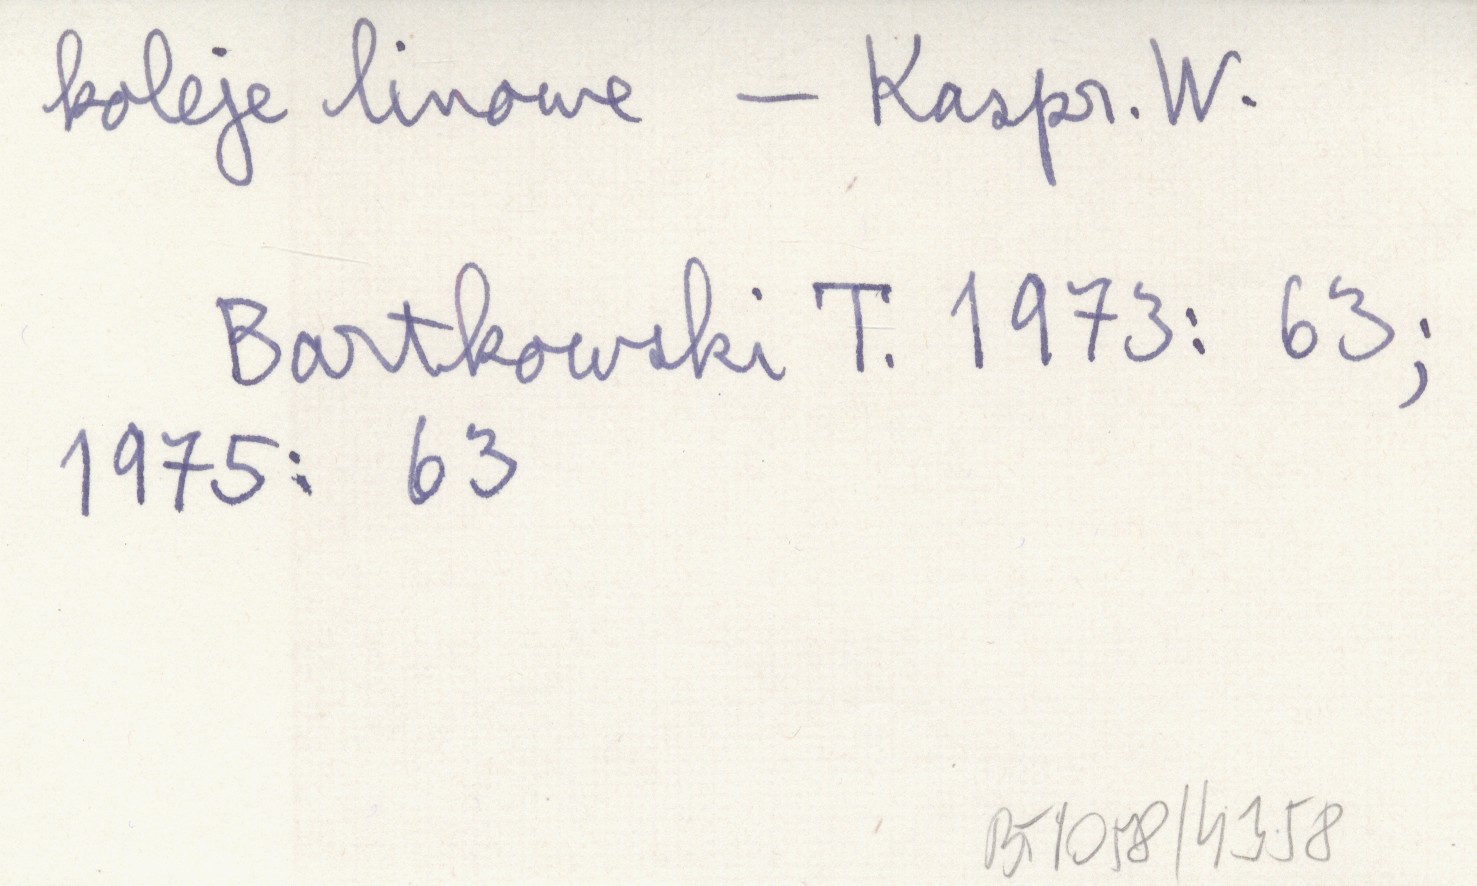 koleje linowe — Kaspr. W.
Bartkowski T. 1973: 63;
1975: 63